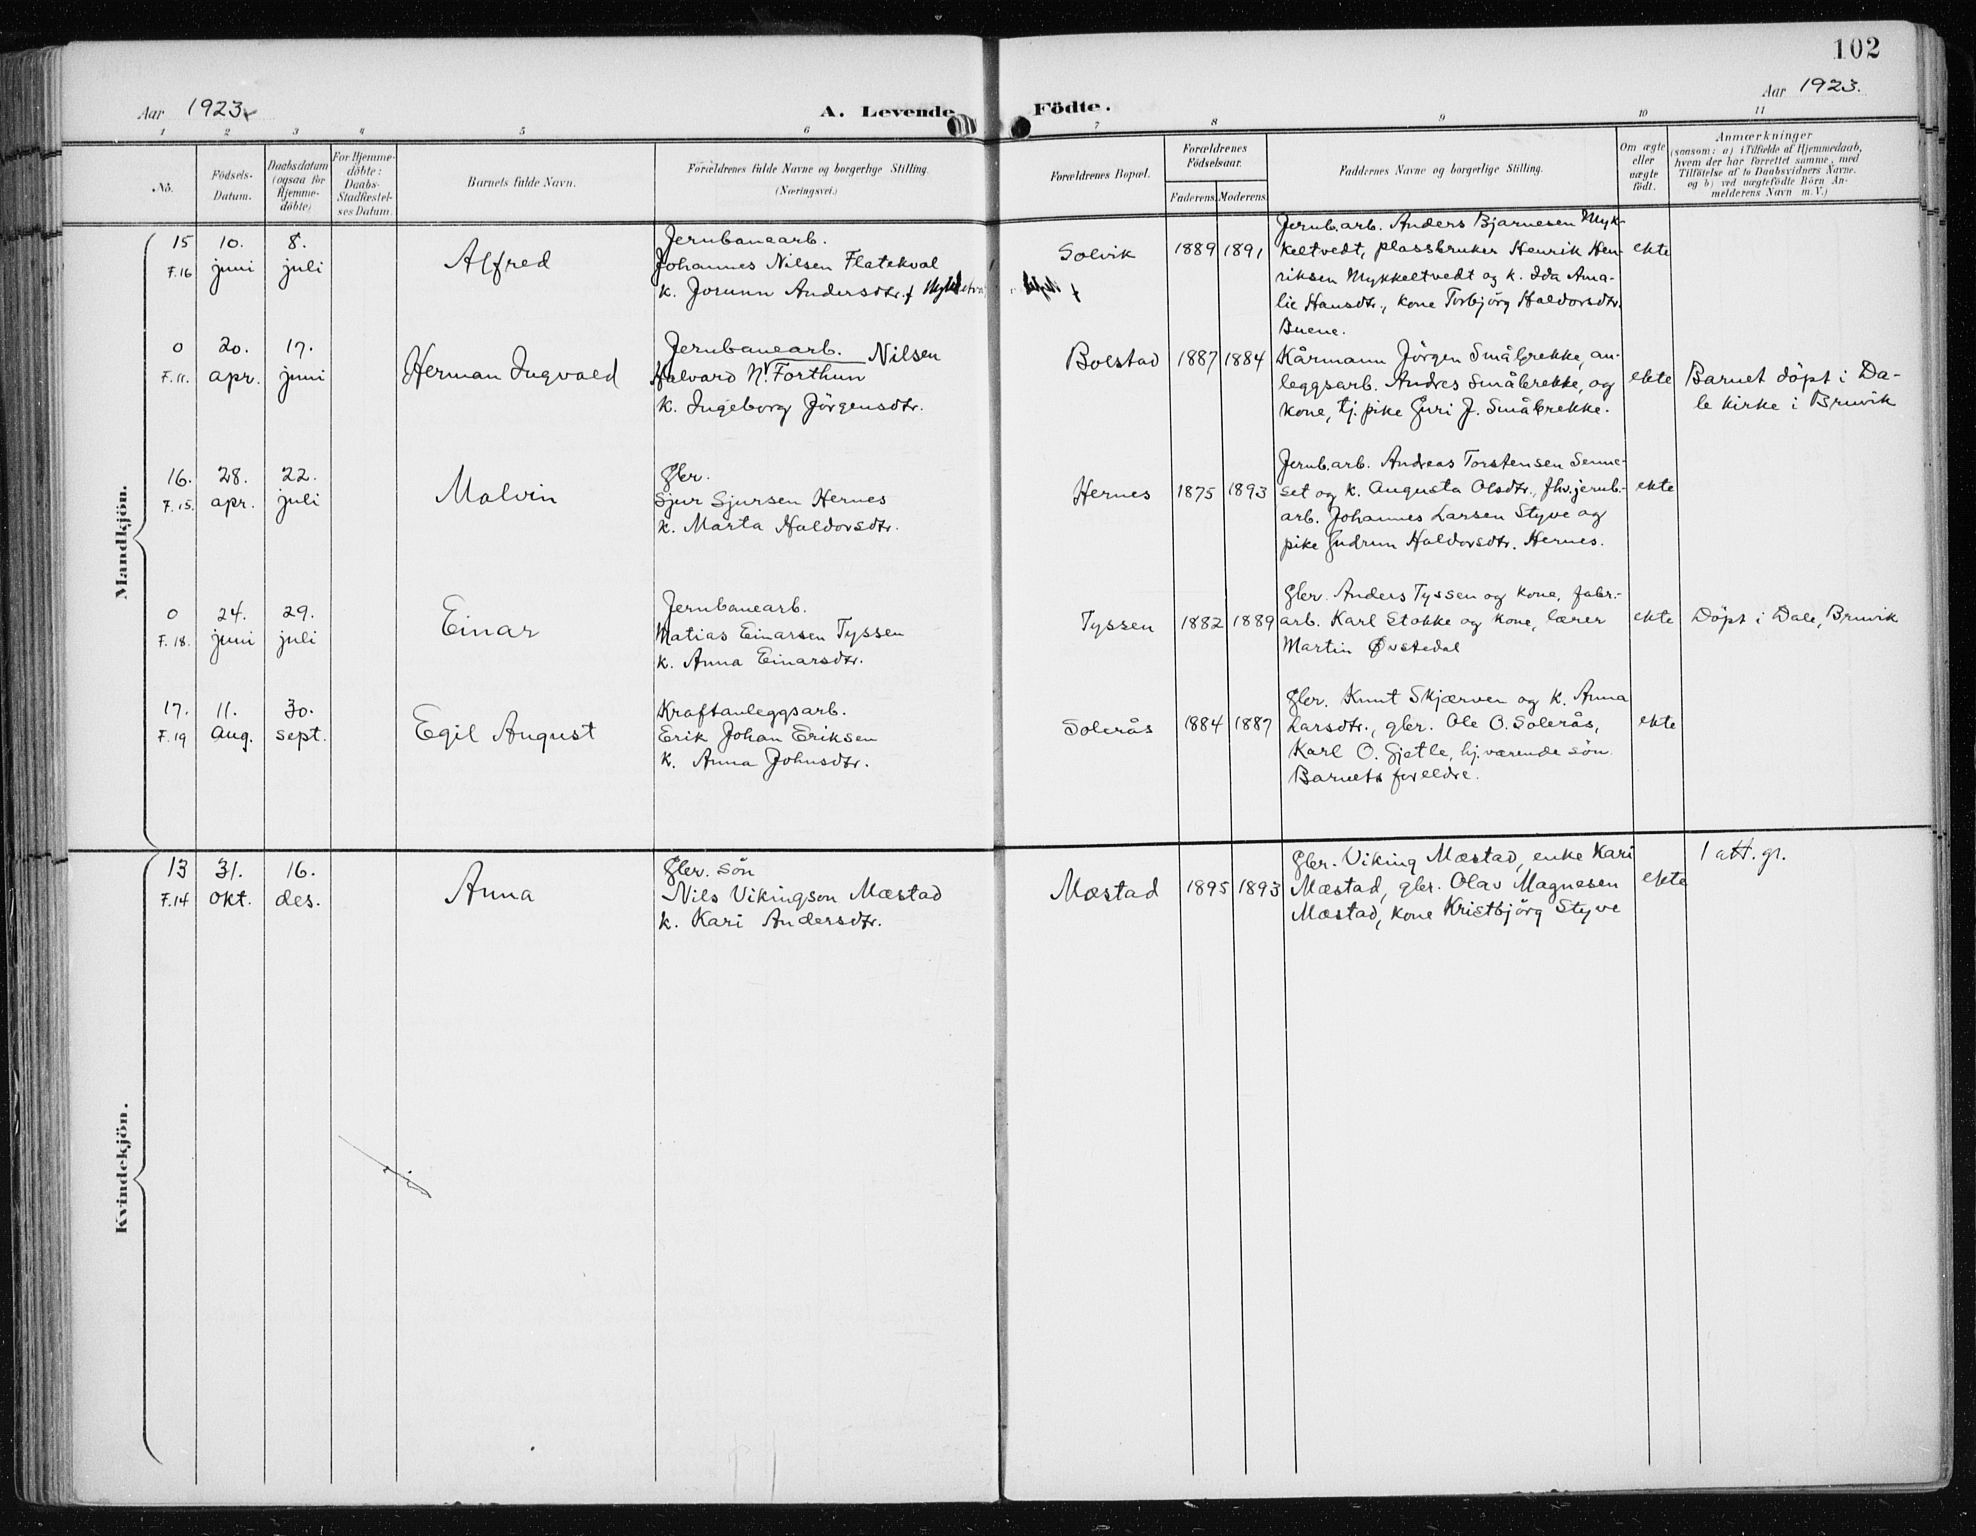 102
Aar 1923.
A. Levende Födte.
Aar 1923.
1 2 3 4 5 6 7 8 9 10 11
No.
Födsels-Datum.
Daabsdatum (ogsaa for Hjemme-döbte)
For Hjemme-döbte: Daabs-Stadfæstel-ses Datum.
Barnets fulde Navn.
Forældrenes fulde Navne og borgerlige Stilling.
(Næringsvei.)
Forældrenes Bopæl.
Forældrenes Födselsaar.
Faderens. Moderens.
Faddernes Navne og borgerlige Stilling.
Om ægte eller uægte födt.
Anmærkninger
(saasom: a) i Tilfælde af Hjemmedaab,
hvem der har forrettet samme, med
Tilföielse af to Daabsvidners Navne.
og b) ved uægtefödte Börn An-
melderens Navn m. V.)
Mandkjön.
15
F.16
10.
juni
8.
juli
Alfred
Jernbanearb.
Johannes Nilsen Flatekval
k. Jorunn Andersdtr.
Solvik
1889 1891
Jernb.arb. Anders Bjarnesen Myk-
keltvedt, plassbruker Henrik Hen-
riksen Mykkeltvedt og k. Ida Ama-
lie Hansdtr., kone Torbjörg Haldorsdtr.
Buene.
ekte
0
F.11.
20.
apr.
17.
juni
Herman Ingvald
Jernbanearb. Nilsen
Halvard N. Forthun
k. Ingeborg Jörgensdtr.
Bolstad
1887 1884
Kårmann Jörgen Småbrekke, an-
leggsarb. Andres Småbrekke, og
kone, tj. pike Guri J. Småbrekke.
ekte
Barnet döpt i Da-
le kirke i Bruvik
16.
F.15.
28.
apr.
22.
juli
Malvin
Gbr.
Sjur Sjursen Hernes
k. Marta Haldorsdtr.
Hernes
1875 1893
Jernb.arb. Andreas Torstensen Senne-
set og k. Augusta Olsdtr., fhv. jernb.-
arb. Johannes Larsen Styve og
pike Gudrun Haldorsdtr. Hernes.
ekte
0
F.18.
24.
juni
29.
juli
Einar
Jernbanearb.
Matias Einarsen Tyssen
k. Anna Einarsdtr.
Tyssen
1882 1889
Gbr. Anders Tyssen og kone, fabr.-
arb. Karl Stokke og kone, lærer
Martin Øvstedal
ekte
Döpt i Dale, Bruvik
17.
F.19
11.
Aug.
30.
sept.
Egil August
Kraftanleggsarb.
Erik Johan Eriksen
k. Anna Johnsdtr.
Solerås
1884 1887
Gbr. Knut Skjærven og k. Anna
Larsdtr., gbr. Ole O. Solerås,
Karl O. Gjetle, hj.værende sön.
Barnets foreldre.
ekte
Kvindekjön.
13
F.14
31.
okt.
16.
des.
Anna
Gbr. sön
Nils Vikingson Mæstad
k. Kari Andersdtr.
Mæstad
1895 1893
Gbr. Viking Mæstad, enke Kari
Mæstad, gbr. Olav Magnesen
Mæstad, kone Kristbjörg Styve
ekte
1 att. gr.